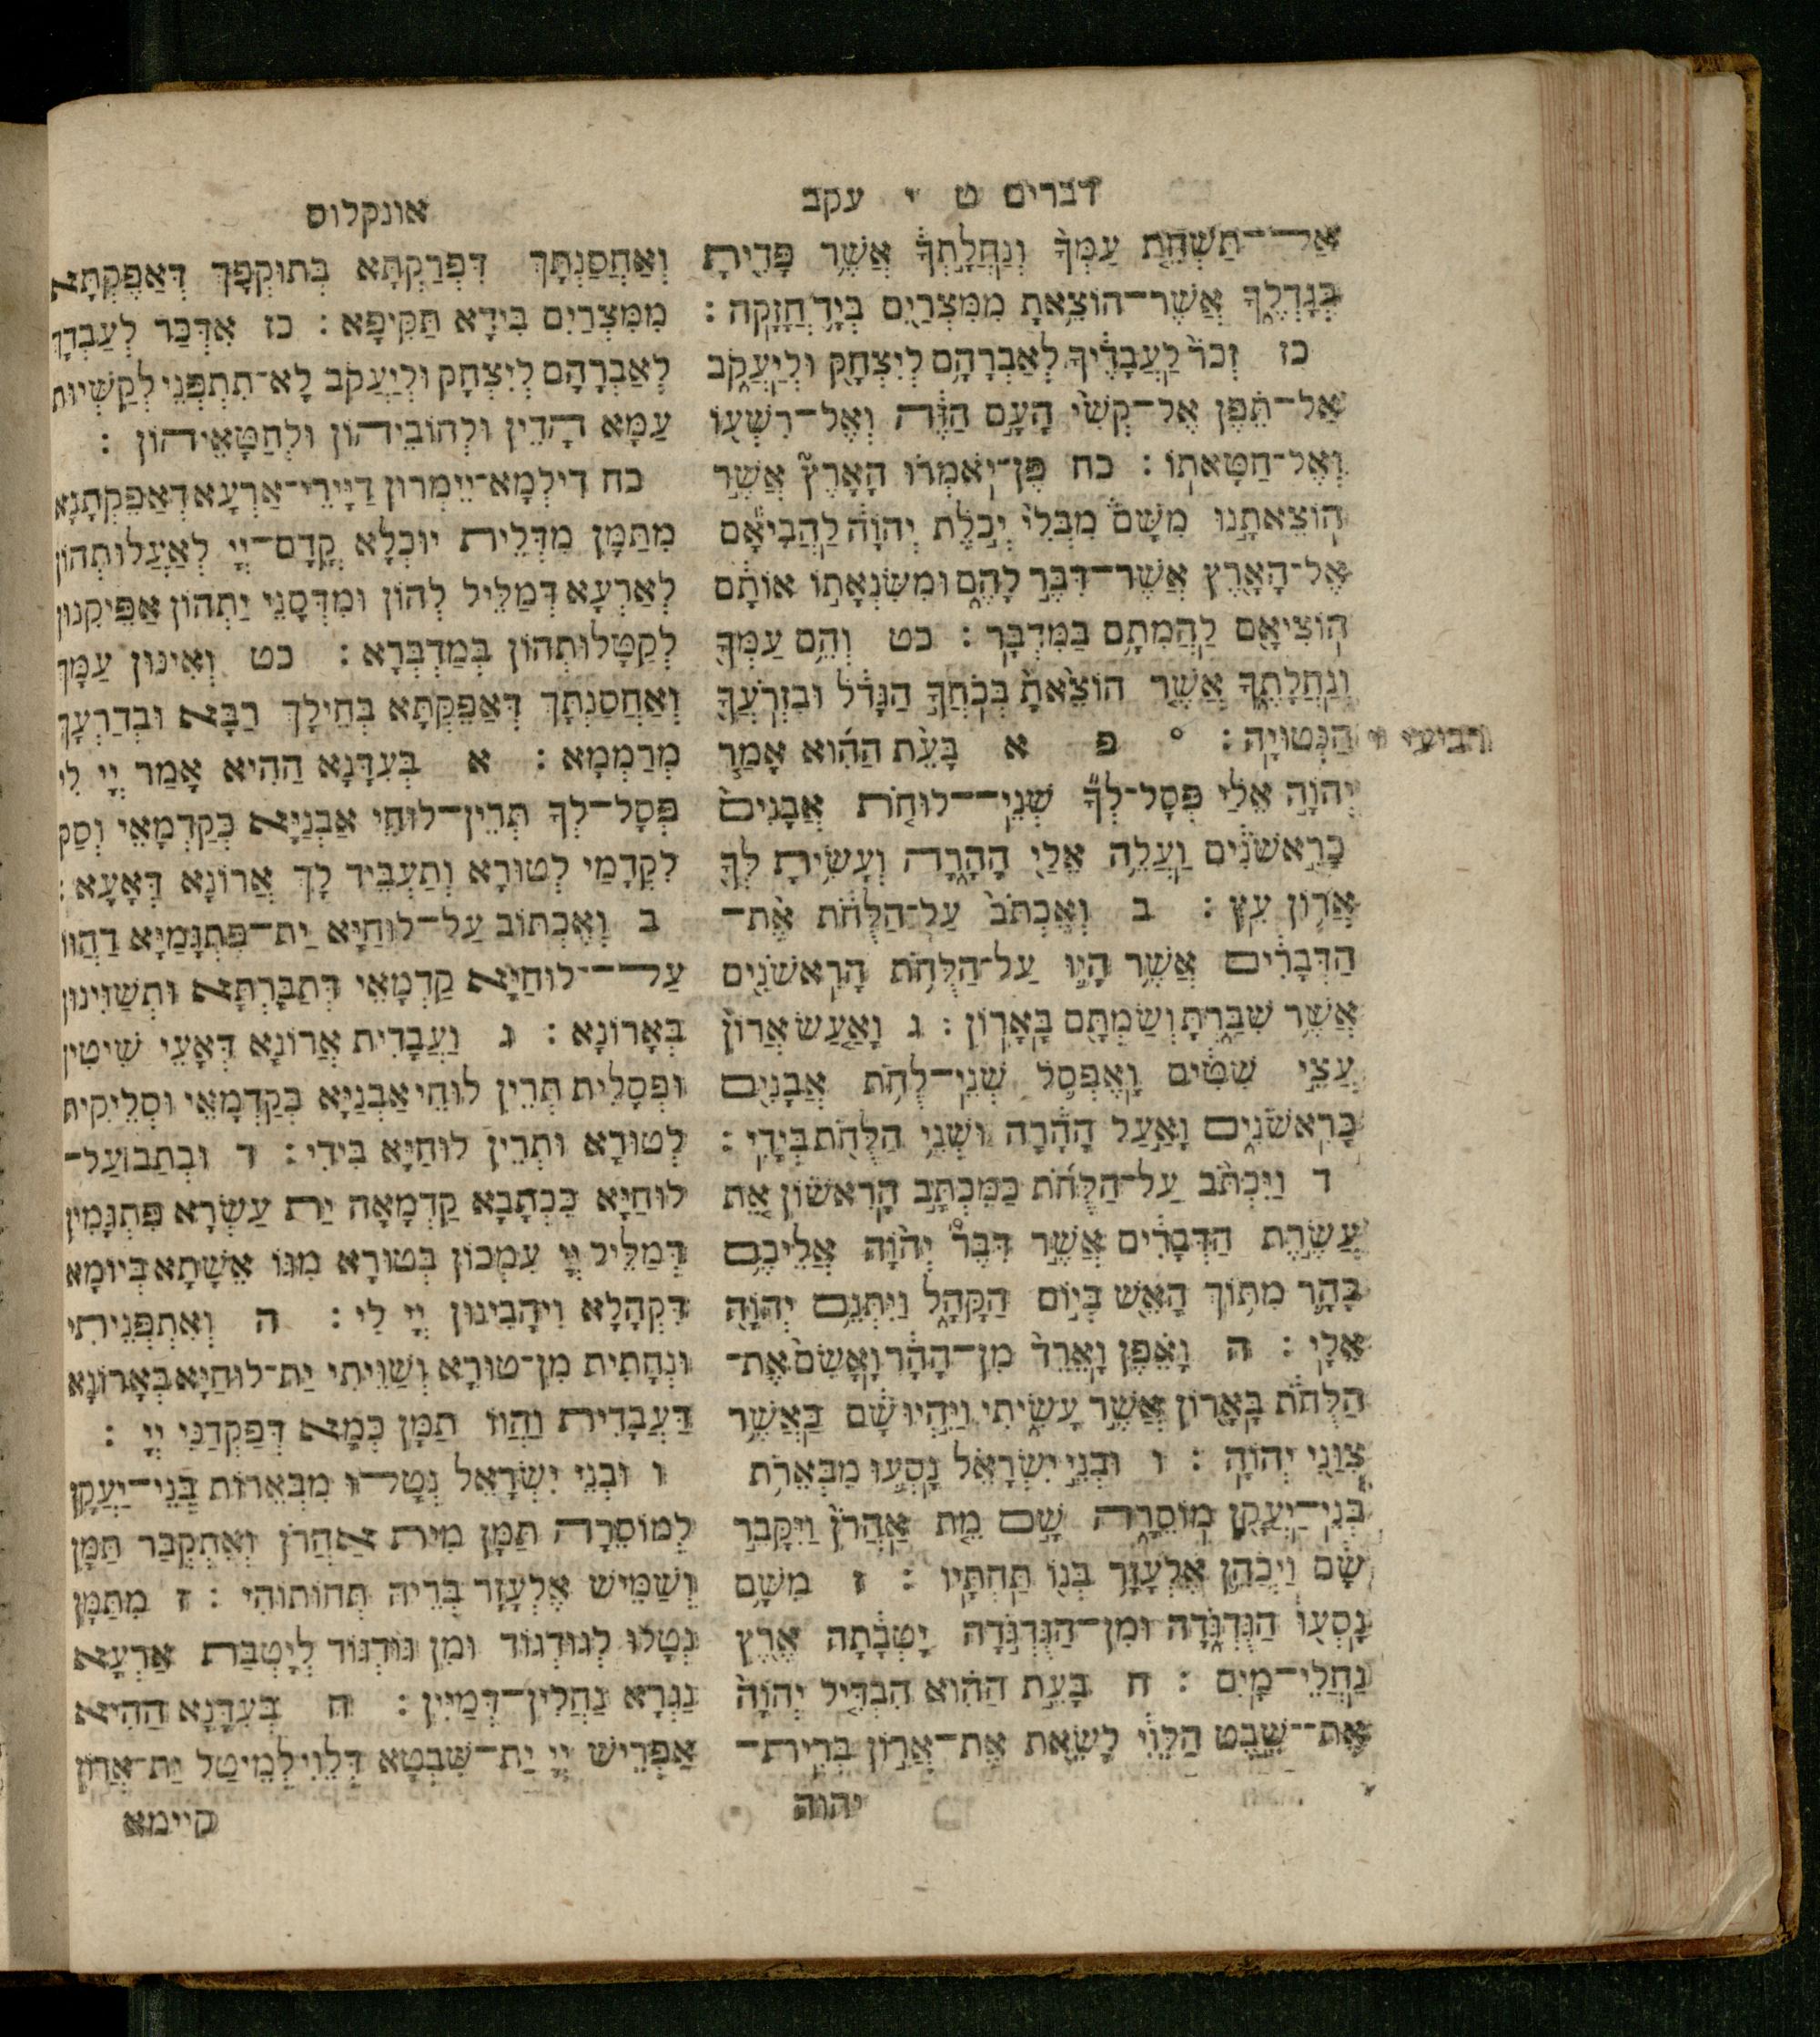 דברים ט י עקב
אל־תשחת עמך ונחלתך אשר פדית
בגדלך אשר־הוצאת ממצרים ביד חזקה :
כז זכר לעבדיך לאברהם ליצחק וליעקב
אל־תפן אל־קשי העם הזה ואל־רשעו
ואל־חטאתו : כח פן־יאמרו הארץ אשר
הוצאתנו משם מבלי יכלת יהוה להביאם
אל־הארץ אשר־דבר להם ומשנאתו אותם
הוציאם להמתם במדבר : כט והם עמך
ונחלתך אשר הוצאת בכחך הגדל ובזרעך
רביעי י הנטויה : ° פ א בעת ההוא אמר
יהוה אלי פסל־לך שני־לוחת אבנים
כראשנים ועלה אלי ההרה ועשית לך
ארון עץ : ב ואכתב על־הלחת את־
הדברים אשר היו על־הלחת הראשנים
אשר שברת ושמתם בארון : ג ואעש ארון
עצי שטים ואפסל שני־לחת אבנים
כראשנים ואעל ההרה ושני הלחת בידי :
ד ויכתב על־הלחת כמכתב הראשון את
עשרת הדברים אשר דבר יהוה אליכם
בהר מתוך האש ביום הקהל ויתנם יהוה
אלי : ה ואפן וארד מן־ההר ואשם את־
הלחת בארון אשר עשיתי ויהיו שם כאשר
צוני יהוה : ו ובני ישראל נסעו מבארת
בני־יעקן מוסרה שם מת אהרן ויקבר
שם ויכהן אלעזר בנו תחתיו : ז משם
נסעו הגדגדה ומן־הגדגדה יטבתה ארץ
נחלי־מים : ח בעת ההוא הבדיל יהוה
את־שבט הלוי לשאת את־ארון ברית־
יהוה
אונקלוס
ואחסנתך דפרקתא בתוקפך דאפקתא
ממצרים בידא תקיפא : כז אדכר לעבדך
לאברהם ליצחק וליעקב לא־תתפני לקשיות
עמא הדין ולחוביהון ולחטאיהון :
כח דילמא־יימרון דיירי־ארעא דאפקתנא
מתמן מדלית יוכלא קדם־יי לאעלותהון
לארעא דמליל להון ומדסני יתהון אפיקנון
לקטלותהון במדברא : כט ואינון עמך
ואחסנתך דאפקתא בחילך רבא ובדרעך
מרממא : א בעדנא ההיא אמר יי לי
פסל־לך תרין־לוחי אבניא כקדמאי וסק
לקדמי לטורא ותעביד לך ארונא דאעא :
ב ואכתוב על־לוחיא ית־פתגמיא דהוו
על־לוחיא קדמאי דתברתא ותשוינון
בארונא : ג ועבדית ארונא דאעי שיטין
ופסלית תרין לוחי אבניא כקדמאי וסליקית
לטורא ותרין לוחיא בידי : ד וכתב ועל־
לוחיא ככתבא קדמאה ית עשרא פתגמין
דמליל יי עמכון בטורא מגו אשתא ביומא
דקהלא ויהבינון יי לי : ה ואתפניתי
ונחתית מן־טורא ושויתי ית־לוחיא בארונא
דעבדית והוו תמן כמא דפקדני יי :
ו ובני ישראל נטלו מבארות בני־יעקן
למוסרה תמן מית אהרן ואתקבר תמן
ושמיש אלעזר בריה תחותוהי : ז מתמן
נטלו לגודגוד ומן גודגוד ליטבת ארעא
נגרא נחלין־דמיין : ח בעדנא ההיא
אפריש יי ית־שבטא דלוי למיטל ית־ארון
קיימא